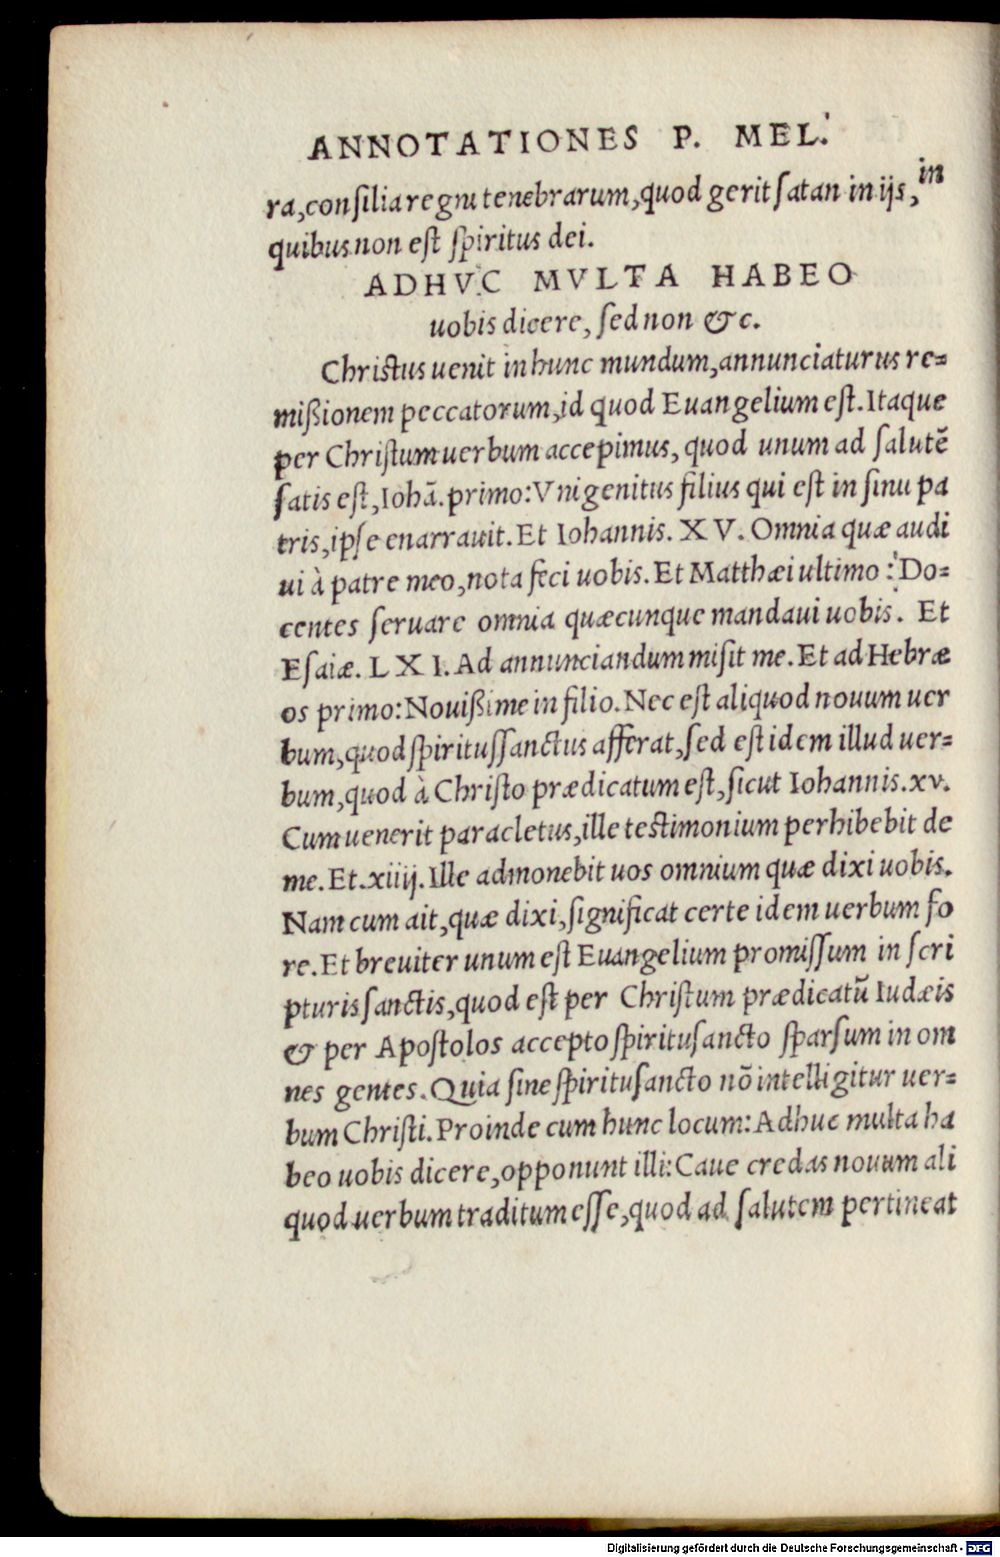 ANNOTATIONES P. MEL.
ra, consilia regni tenebrarum, quod gerit satan in ijs, in
quibus non est spiritus dei.
ADHVC MVLTA HABEO
uobis dicere, sed non &c.
Christus uenit in hunc mundum, annunciaturus re=
mißionem peccatorum, id quod Euangelium est. Itaque
per Christum uerbum accepimus, quod unum ad salutē
satis est, Iohā. primo: Vnigenitus filius qui est in sinu pa
tris, ipse enarrauit. Et Iohannis. XV. Omnia quæ audi
ui à patre meo, nota feci uobis. Et Matthæi ultimo: Do=
centes seruare omnia quæcunque mandaui uobis. Et
Esaiæ. LXI. Ad annunciandum misit me. Et ad Hebræ
os primo: Nouißime in filio. Nec est aliquod nouum uer
bum, quod spiritussanctus afferat, sed est idem illud uer=
bum, quod à Christo prædicatum est, sicut Iohannis. xv.
Cum uenerit paracletus, ille testimonium perhibebit de
me. Et. xiiij. Ille admonebit uos omnium quæ dixi uobis.
Nam cum ait, quæ dixi, significat certe idem uerbum fo
re. Et breuiter unum est Euangelium promissum in scri
pturis sanctis, quod est per Christum prædicatū Iudæis
& per Apostolos accepto spiritusancto sparsum in om
nes gentes. Quia sine spiritusancto nō intelligitur uer=
bum Christi. Proinde cum hunc locum: Adhuc multa ha
beo uobis dicere, opponunt illi: Caue credas nouum ali
quod uerbum traditum esse, quod ad salutem pertineat
Digitalisierung gefördert durch die Deutsche Forschungsgemeinschaft - DFG